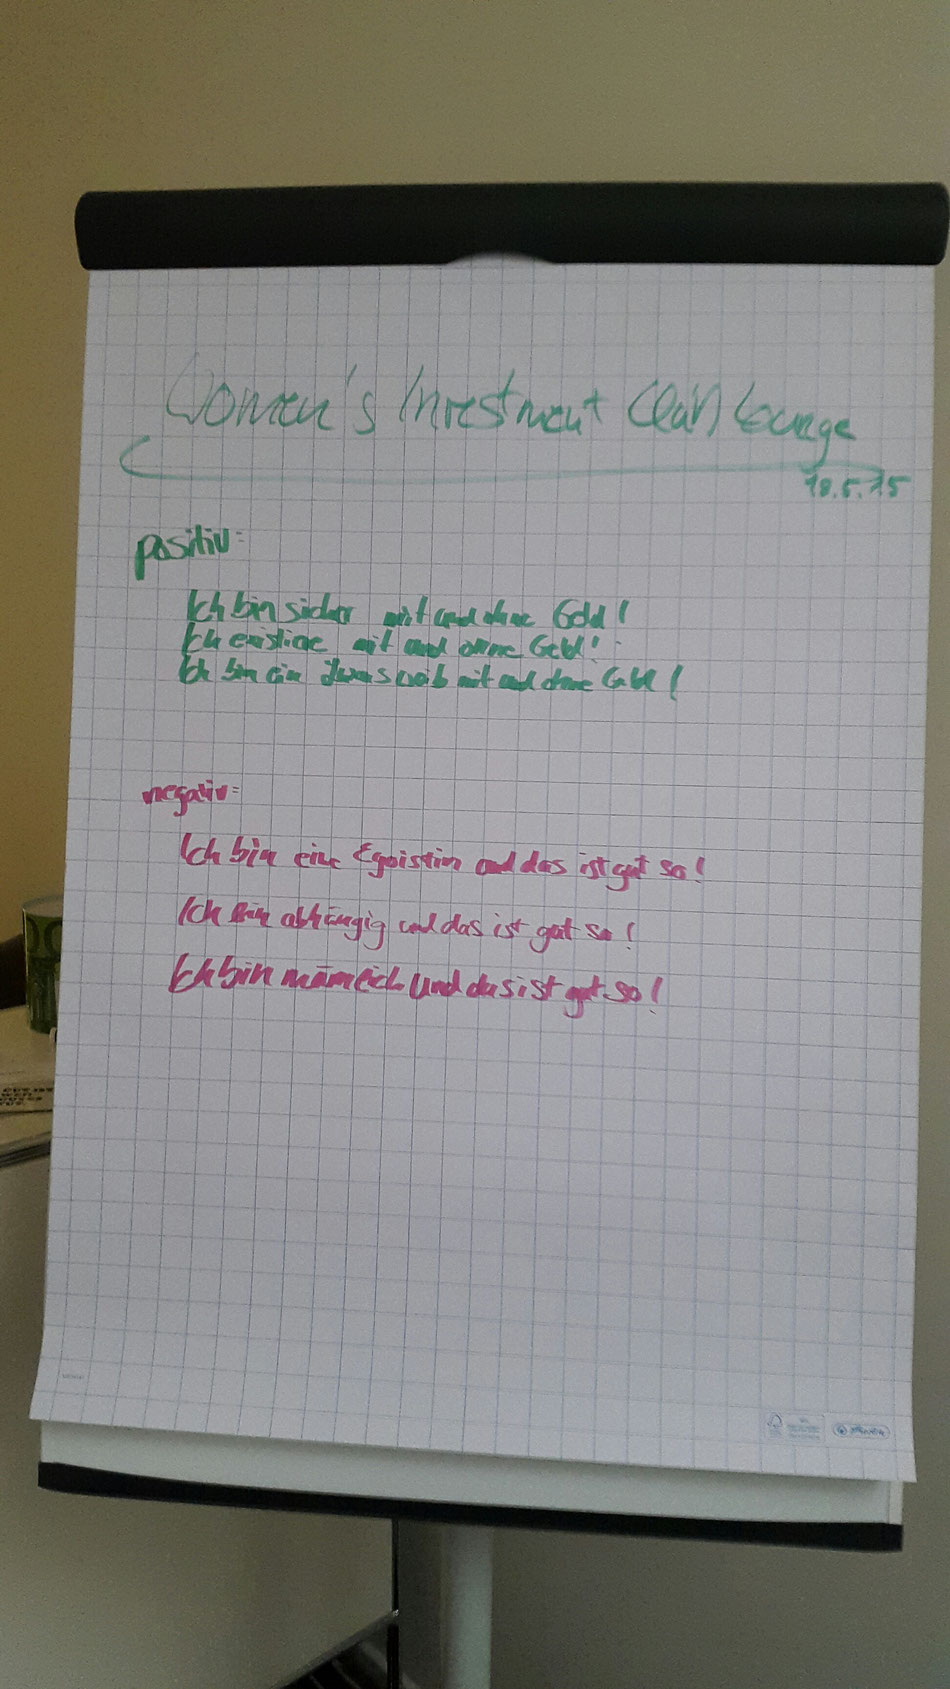 Women's Investment Lounge
18.5.15
positiv:
Ich bin sicher mit und ohne Geld!
Ich existiere mit und ohne Geld!
Ich bin ein mit und ohne Geld!
negativ:
Ich bin eine Egoistin und das ist gut so!
Ich bin abhängig und das ist gut so!
Ich bin männlich und das ist gut so!